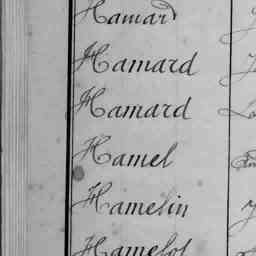 Hamard
Hamard
Hamard
Hamel
Hamelin
Hamelot